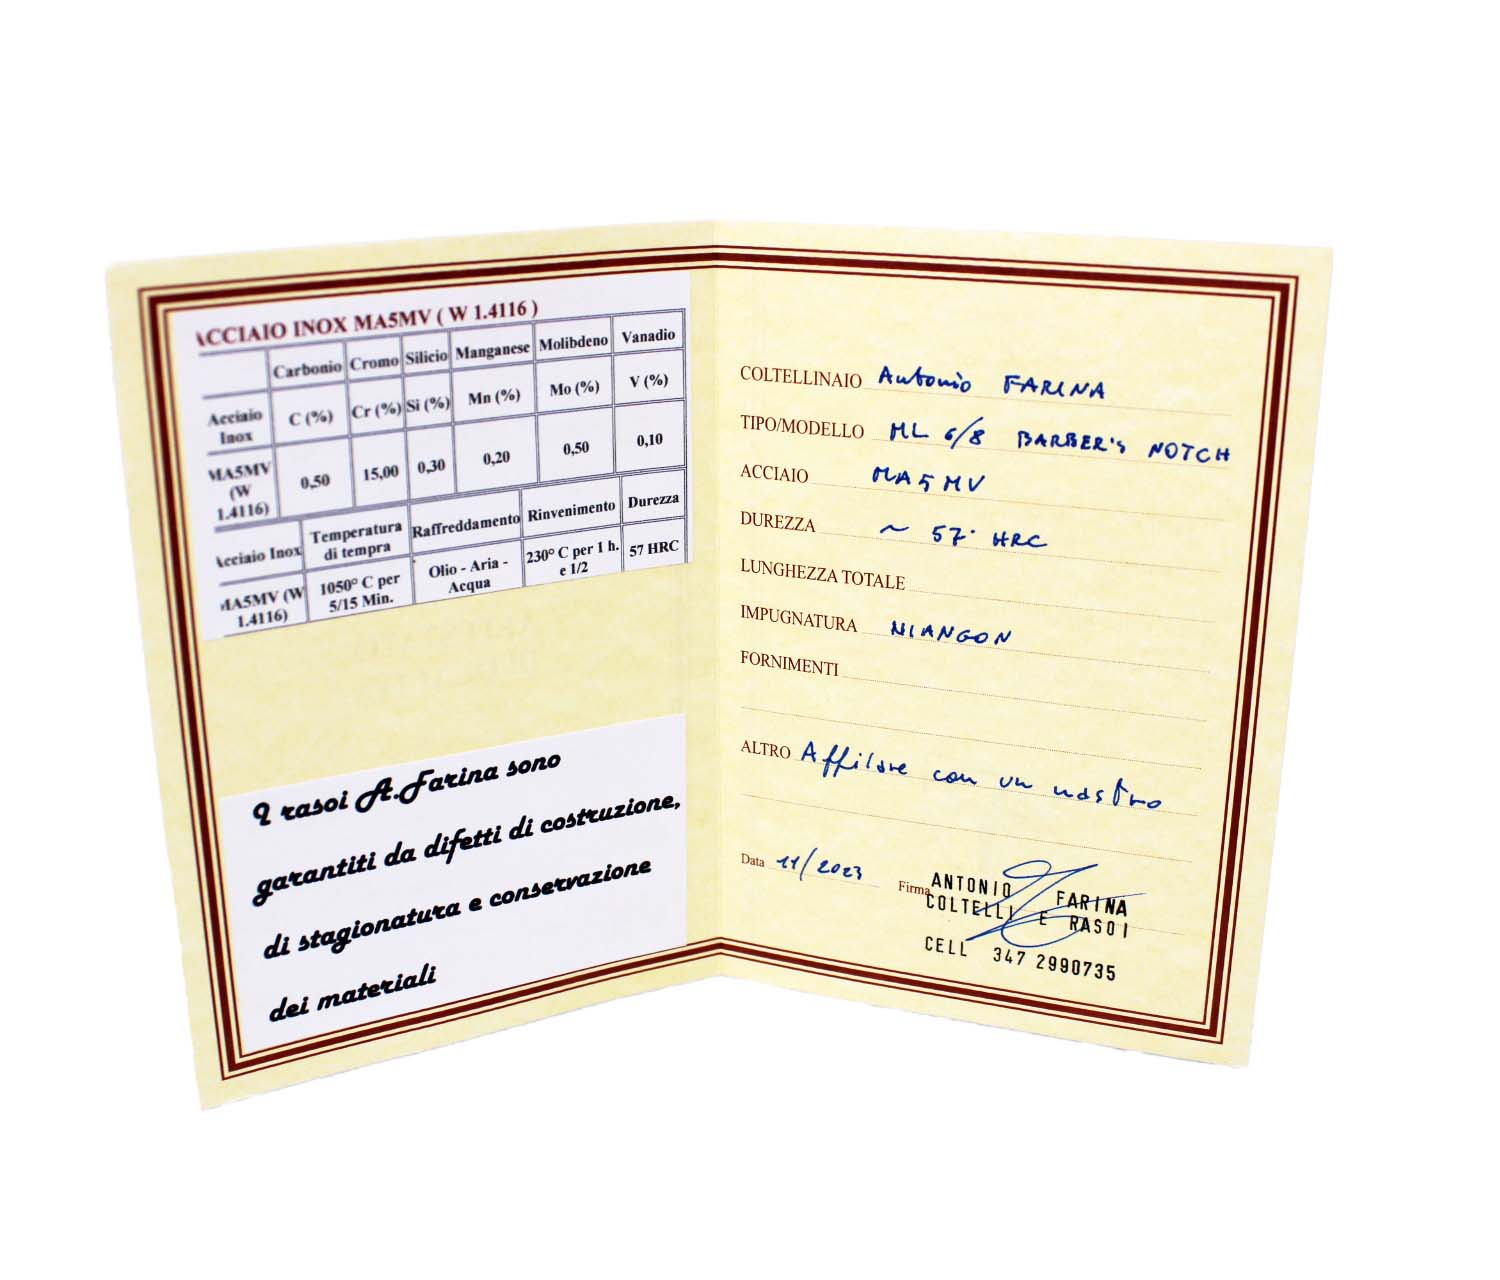 ACCIAIO INOX MA5MV ( W 1.4116 )
Carbonio Cromo Silicio Manganese Molibdeno Vanadio
Acciaio Inox C (%) Cr (%) Si (%) Mn (%) Mo (%) V (%)
MA5MV (W 1.4116) 0,50 15,00 0,30 0,20 0,50 0,10
Acciaio Inox Temperatura di tempra Raffreddamento Rinvenimento Durezza
MA5MV (W 1.4116) 1050° C per 5/15 Min. Olio - Aria - Acqua 230° C per 1 h. e 1/2 57 HRC
I rasoi A.Farina sono
garantiti da difetti di costruzione,
di stagionatura e conservazione
dei materiali
COLTELLINAIO Antonio FARINA
TIPO/MODELLO ML 6/8 BARBER'S NOTCH
ACCIAIO MA5MV
DUREZZA ~ 57° HRC
LUNGHEZZA TOTALE
IMPUGNATURA NIANGON
FORNIMENTI
ALTRO Affilare con un nastro
Data 11/2023 Firma
ANTONIO FARINA
COLTELLI E RASOI
CELL 347 2990735